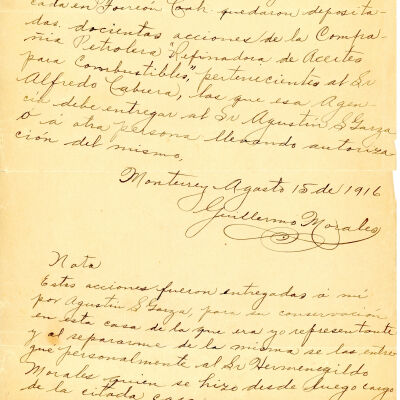 cada en Torreón Coah. quedaron deposita-
das, docientas acciones de la Compa-
ñia Petrolera "Refinadora de Aceites
para Combustibles," pertenecientes al Sr
Alfredo Cabrera, las que esa Agen-
cia debe entregar al Sr Agustín S Garza
O á otra persona llevando autoriza-
ción del mismo,
Monterrey Agosto 15 de 1916
Guillermo Morales
Nota
Estas acciones fueron entregadas á mi
por Agustin S Garza, para su conservación
en esta casa de la que era yo representante
y al separarme de la misma se las entre-
gué personalmente al Sr Hermenegildo
Morales quien se hizo desde luego cargo
de la citada casa